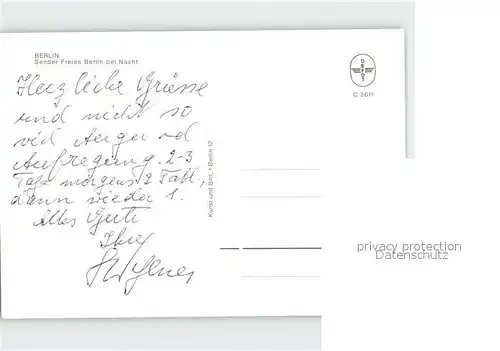 BERLIN
Sender Freies Berlin bei Nacht
Herzliche Grüsse
und nicht so
viel Aerger und
Aufregung. 2-3
Tage morgens 2 Tabl.,
dann wieder 1.
Alles Gute
Ihre
DEPOT
C 2611
Kunst und Bild, 1 Berlin 12
privacy protection
Datenschutz